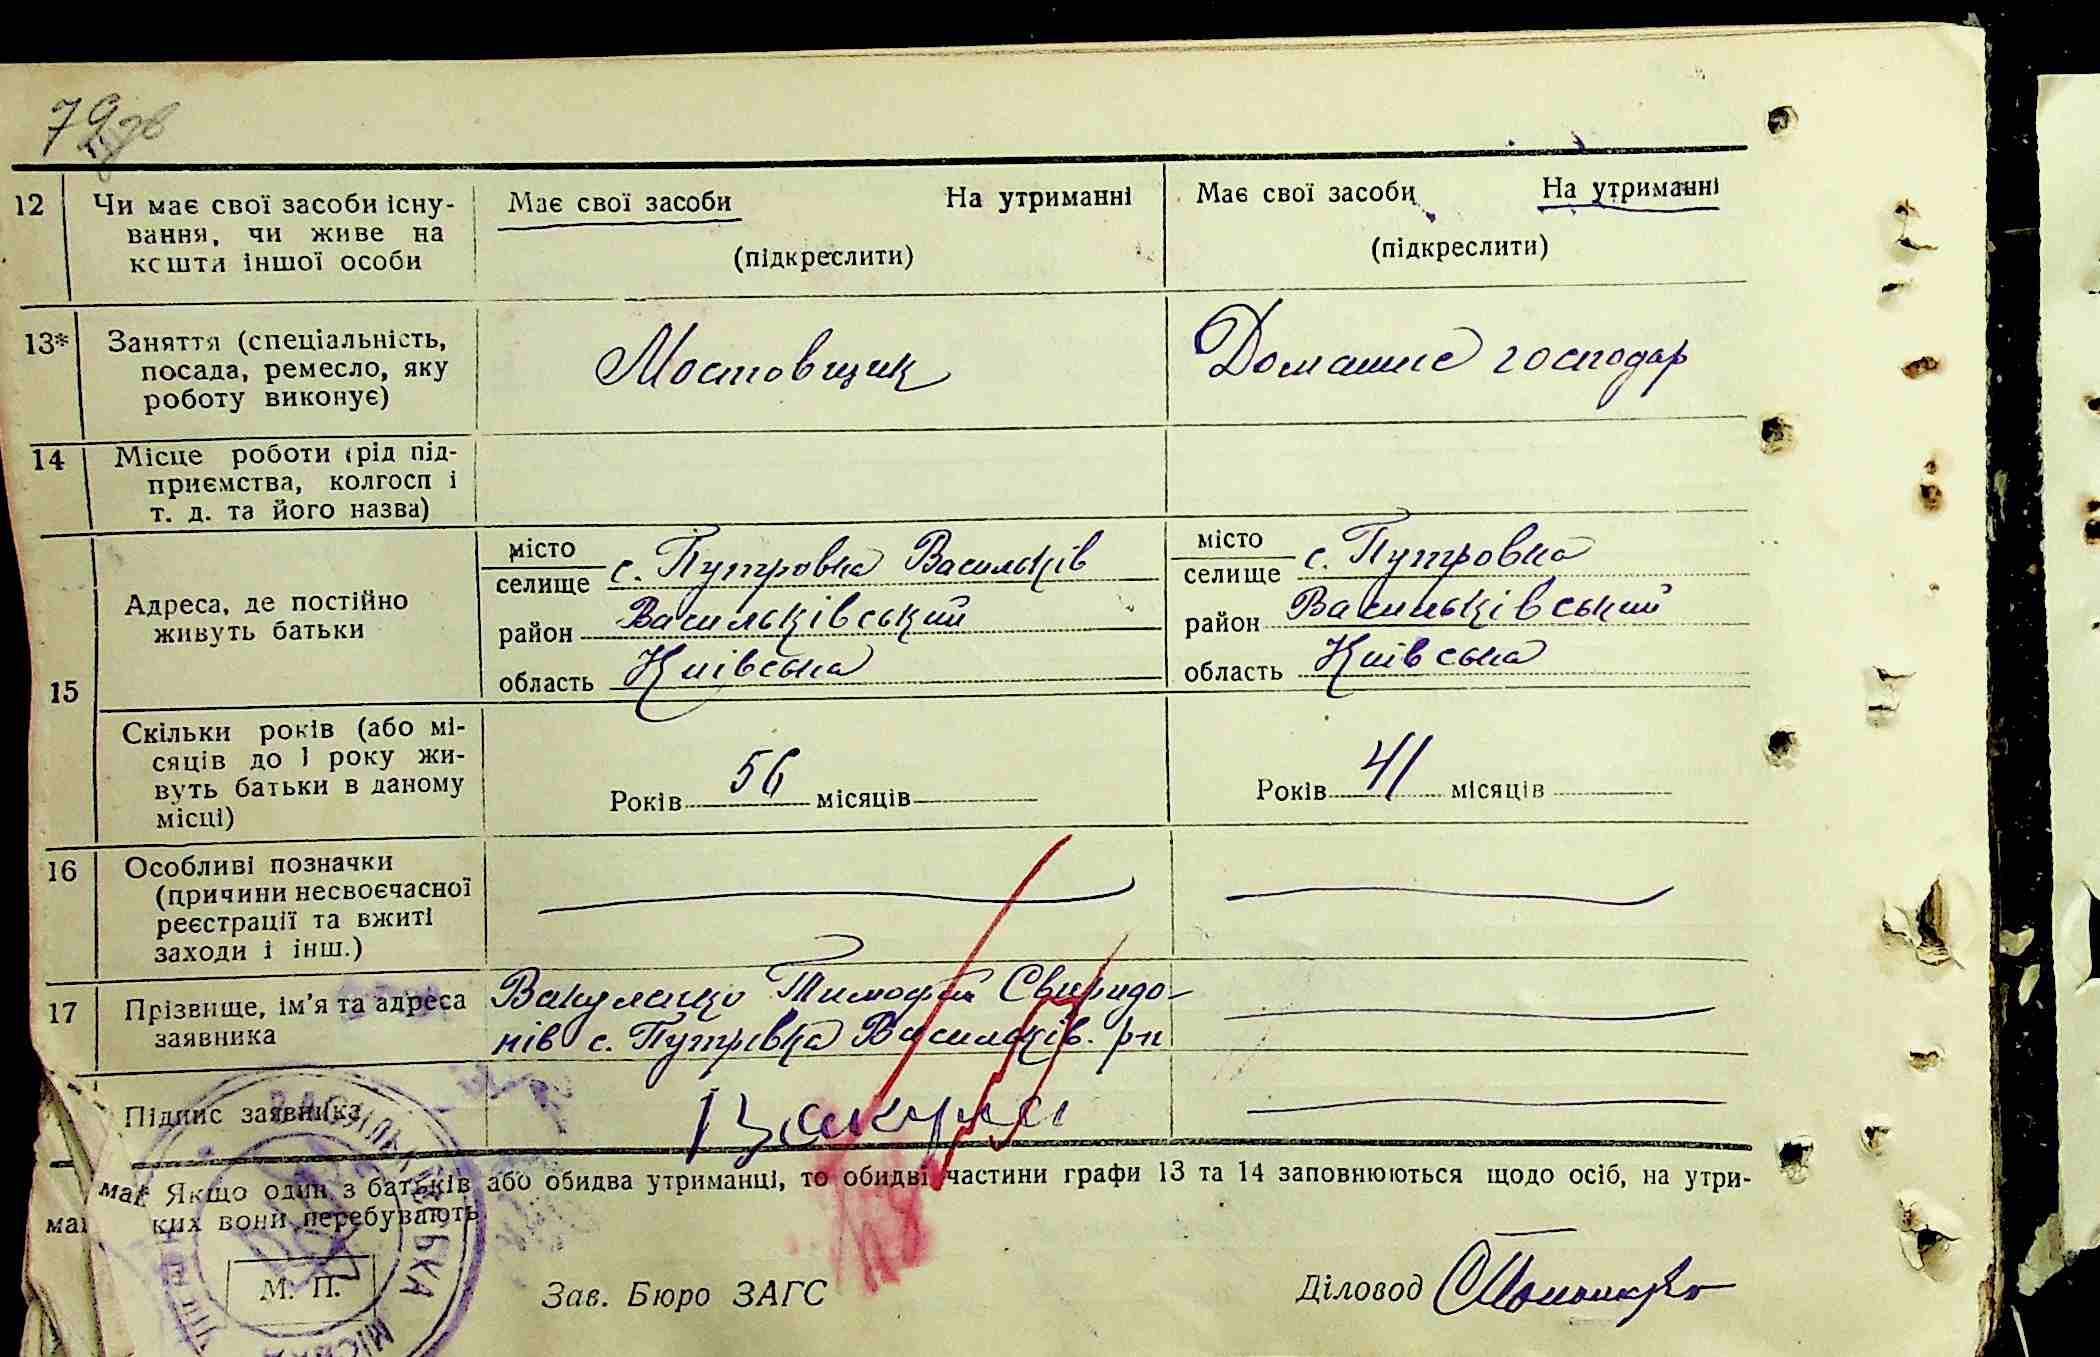 79 зв
12 Чи має свої засоби існу- Має свої засоби На утриманні Має свої засоби На утриманні
вання, чи живе на
кошти іншої особи (підкреслити) (підкреслити)
13* Заняття (спеціальність, Мостовщик Домашнє господар
посада, ремесло, яку
роботу виконує)
14 Місце роботи (рід під-
приємства, колгосп і
т. д. та його назва)
15 Адреса, де постійно місто с. Путровка Васильків місто с. Путровка
живуть батьки селище селище
район Васильківський район Васильківський
область Київська область Київська
Скільки років (або мі-
сяців до 1 року жи-
вуть батьки в даному Років 56 місяців Років 41 місяців
місці)
16 Особливі позначки
(причини несвоєчасної
реєстрації та вжиті
заходи і інш.)
17 Прізвище, ім'я та адреса Вакуленко Тимофій Свиридо-
заявника нів с. Путрівка Васильків. р-н
Підпис заявника
Якщо один з батьків або обидва утриманці, то обидві частини графи 13 та 14 заповнюються щодо осіб, на утри-
ких вони перебувають
М. П. Зав. Бюро ЗАГС Діловод